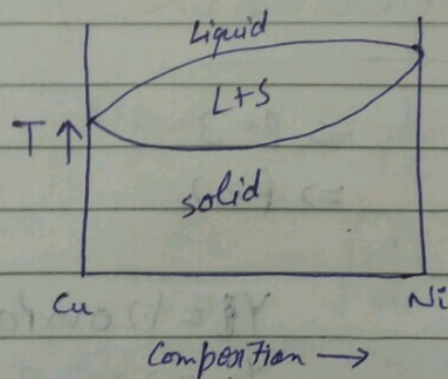 Liquid
L+S
T ↑
solid
Cu
Ni
Composition →